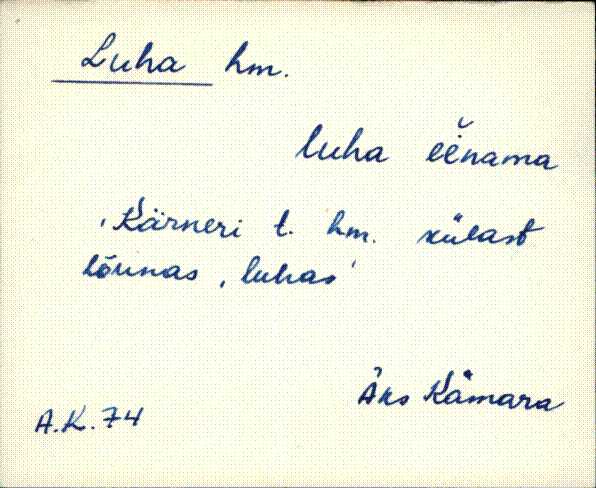 Luha hm.
luha eěnama
'Kärneri t. hm. külast
lõunas, luhas'
Äks Kämara
A.K. 74